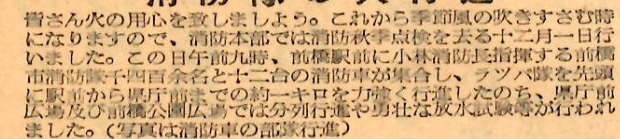 皆さん火の用心を致しましよう。これから季節風の吹きすさむ時
になりますので、消防本部では消防秋季点検を去る十二月一日行
いました。この日午前九時、前橋駅前に小林消防長指揮する前橋
市消防隊千四百余名と十二台の消防車が集合し、ラツパ隊を先頭
に駅前から県庁前までの約一キロを力強く行進したのち、県庁前
広場及び前橋公園広場では分列行進や勇壮な放水試験等が行われ
ました。(写真は消防車の部隊行進)